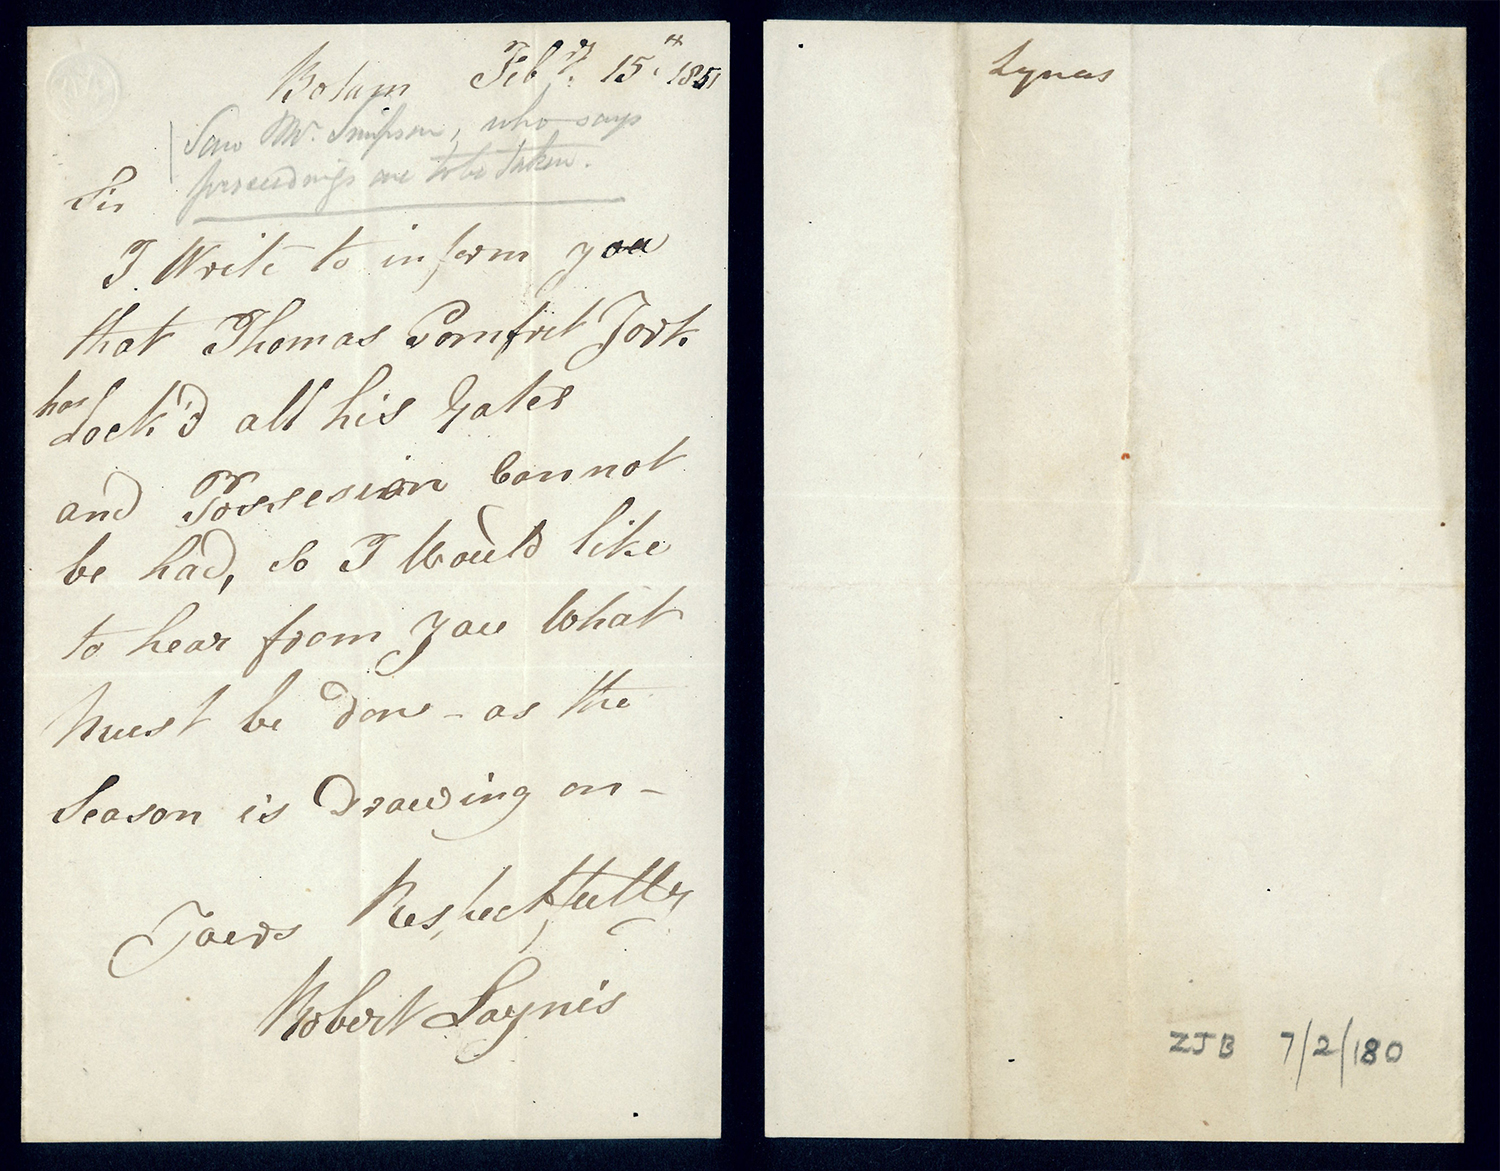 Bolam Feb.ry 15.th 1851
Saw Mr. Simpson, who says
proceedings are to be taken.
Sir
I Write to inform you
that Thomas Pomfret York
has
Lock'd all his Gates
and Possesion Cannot
be had, So I Would like
to hear from You What
Must be done - as the
Season is Drawing on -
Yours Respectfully
Robert Laynis
Lynas
ZJB 7/2/180